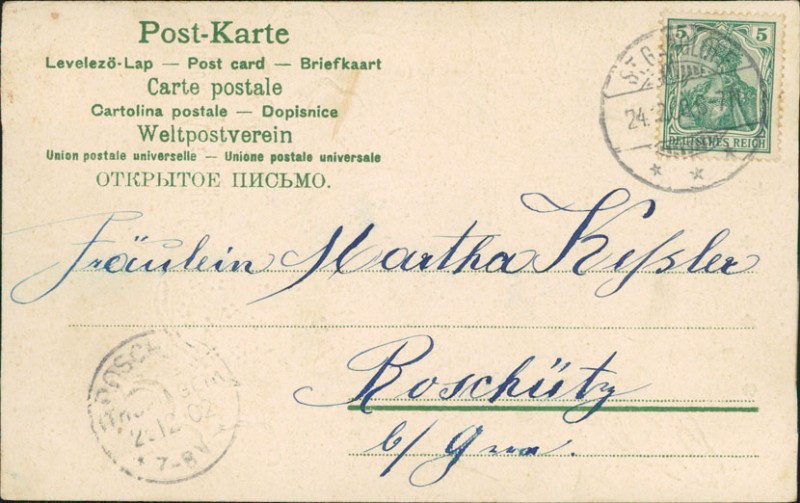 Post-Karte
Levelező-Lap — Post card — Briefkaart
Carte postale
Cartolina postale — Dopisnice
Weltpostverein
Union postale universelle — Unione postale universale
ОТКРЫТОЕ ПИСЬМО.
5 5
DEUTSCHES REICH
24.
Fräulein Martha Keſsler
Roschütz
b/ Gera.
12.02
7-8V